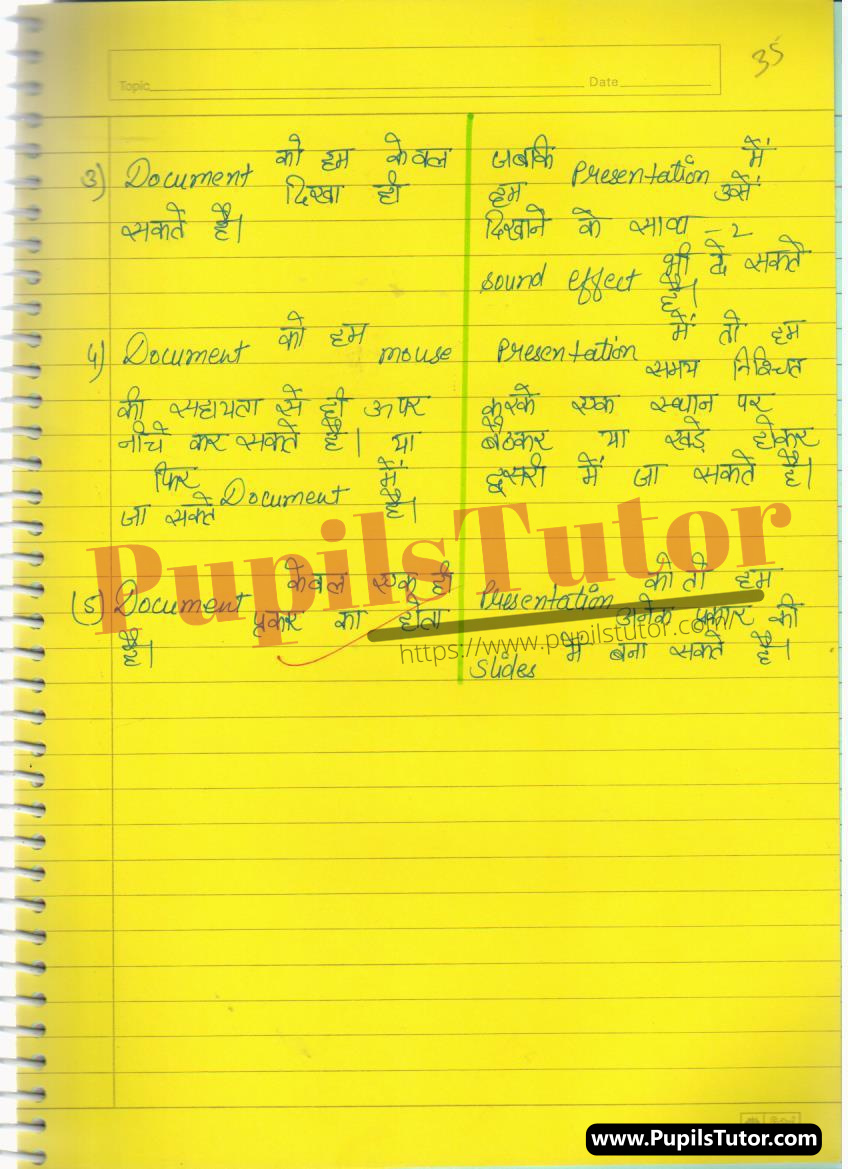 35
Topic
Date
3) Document को हम केवल
दिखा ही
सकते है।
जबकि Presentation में
हम उसे
दिखाने के साथ -2
sound effect भी दे सकते
है।
4) Document को हम mouse
की सहायता से ही ऊपर
नीचे कर सकते है। या
फिर Document में
जा सकते है।
Presentation में तो हम
समय निश्चित
करके एक स्थान पर
बैठकर या खड़े होकर
दूसरी में जा सकते है।
(5) Document केवल एक ही
प्रकार का होता
है।
Presentation को तो हम
अनेक प्रकार की
Slides में बना सकते है।
PupilsTutor
https://www.pupilstutor.com
www.PupilsTutor.com